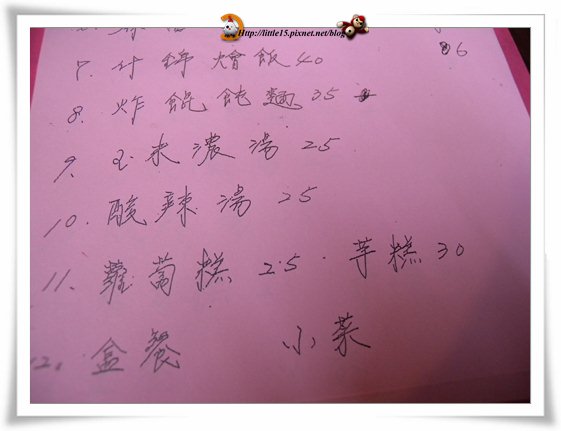 http://little15.pixnet.net/blog
86
7. 什錦燴飯 40
8. 炸餛飩麵 35
9. 玉米濃湯 25
10. 酸辣湯 25
11. 蘿蔔糕 25. 芋糕 30
12. 盒餐 小菜